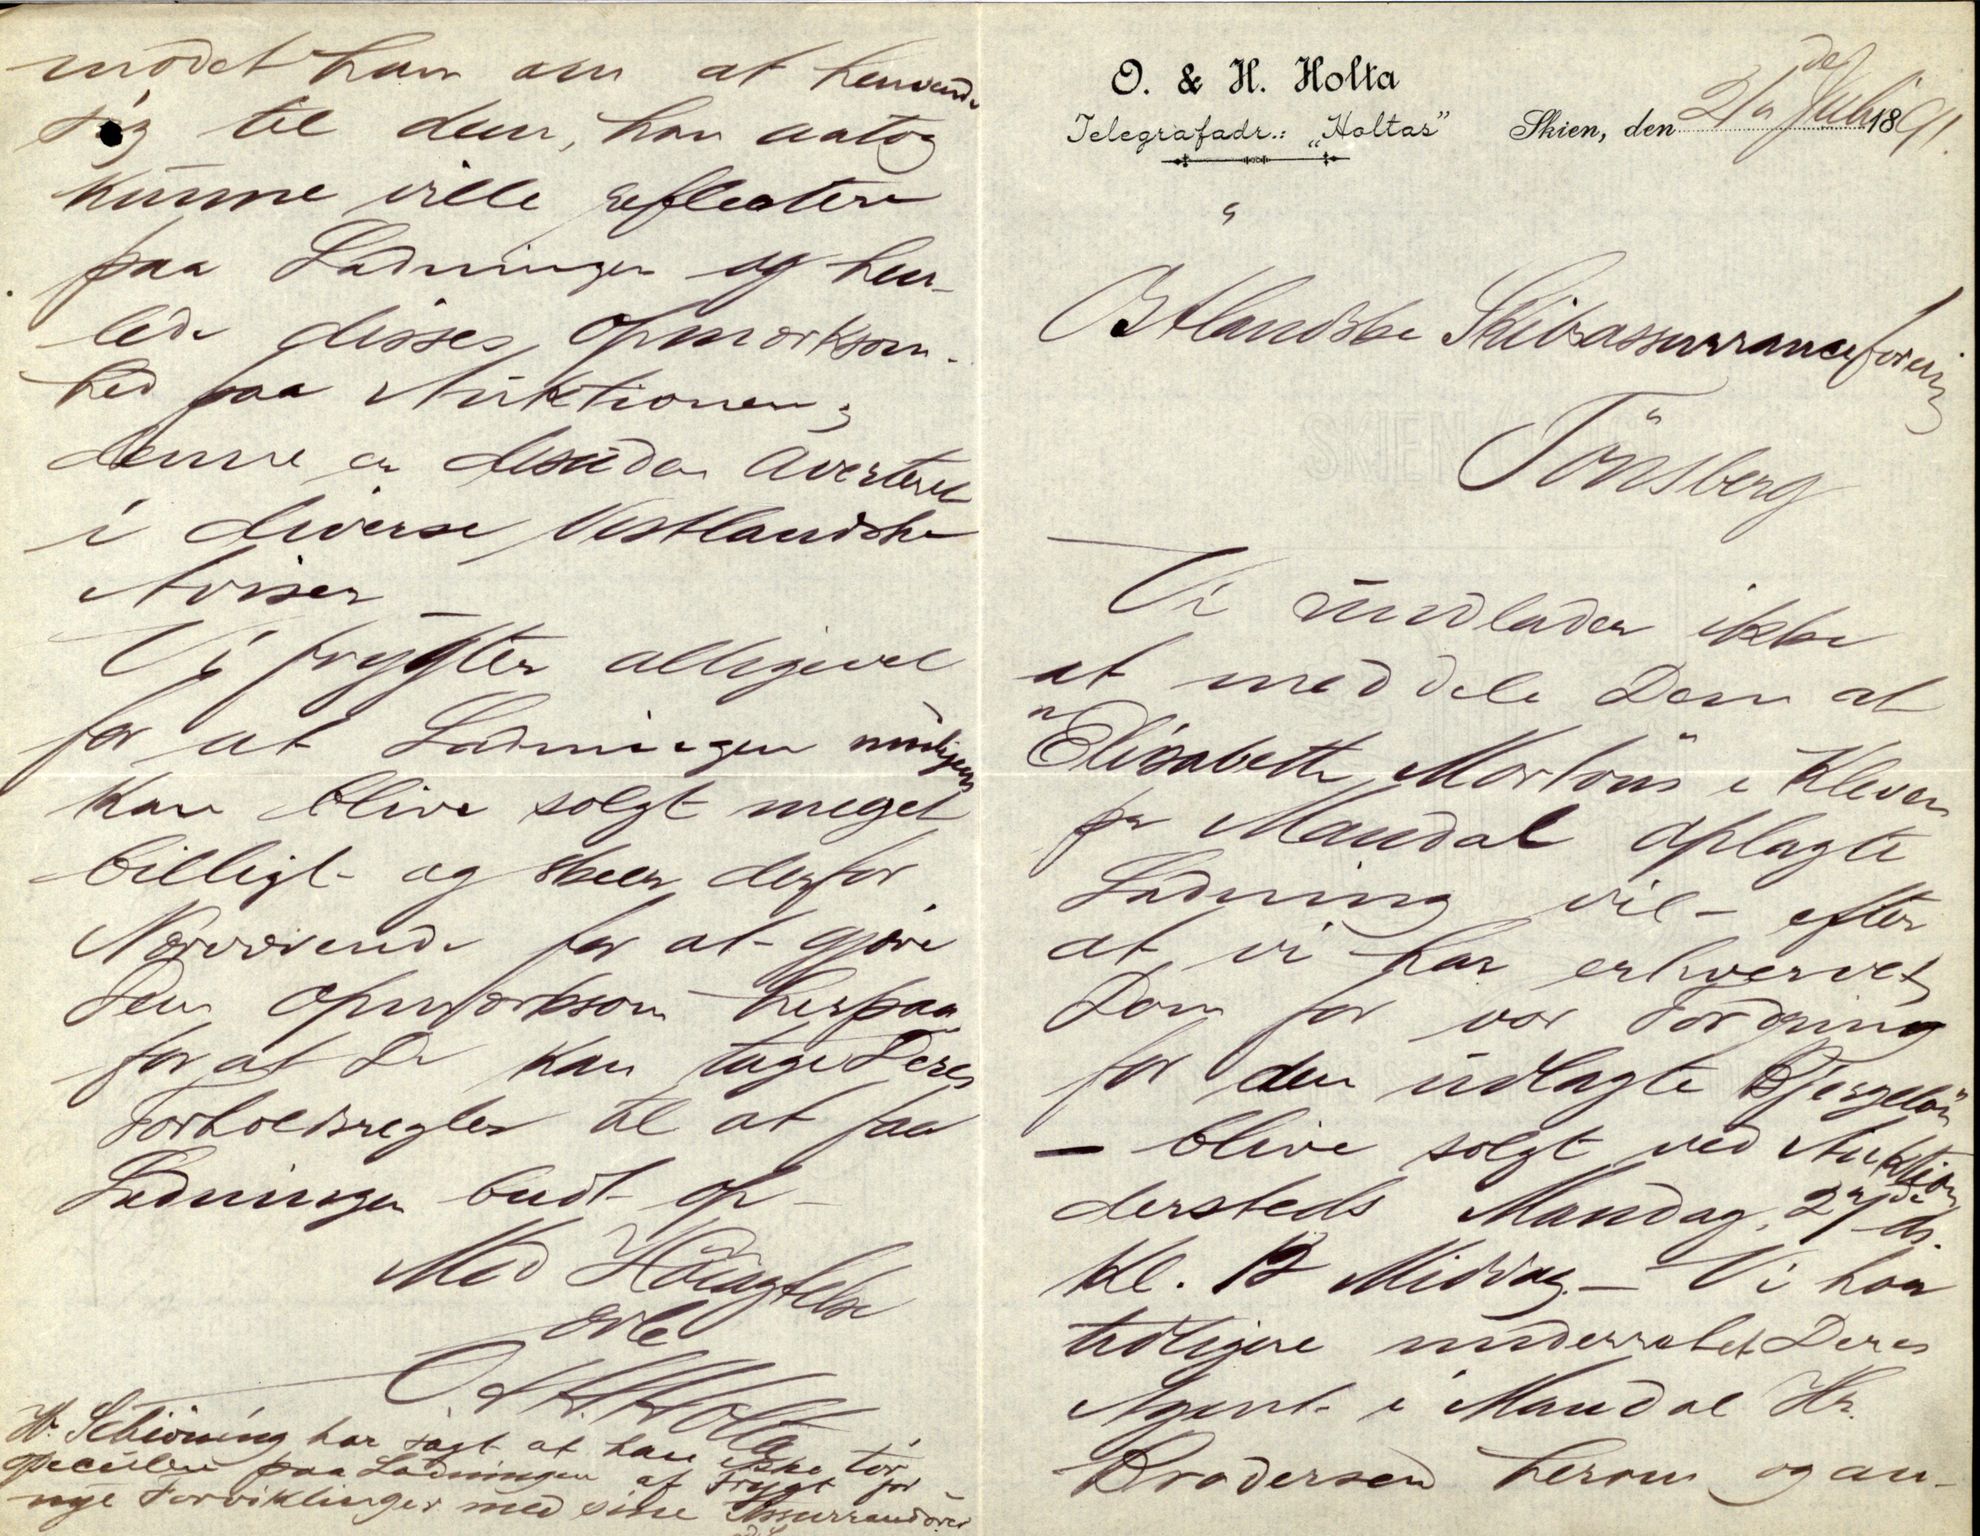 O. & H. Holta
Telegrafadr.: „Holtas"
Skien, den 21de Juli 1891.
Östlandske Skibsassuranceforening
Tönsberg
Vi undlader ikke
at meddele Dem at
"Elisabeth Mortons" i Kleven
pr Mandal oplagte
Ladning vil – efter
at vi har erhvervet
Dom for vor Fordring
for den udlagte Bjergelön
– blive solgt ved Auktion
dersteds Mandag 27de ds.
Kl. 12 Middag. – Vi har
tidligere underrettet Deres
Agent i Mandal Hr.
Brodersen herom og an-
modet ham om at henvende
sig til dem, han antog
kunne ville reflectere
paa Ladningen og hen-
lede disses opmærksom-
hed paa Auktionen;
denne er desuden averteret
i diverse Vestlandske
Aviser –
Vi frygter alligevel
for at Ladningen muligens
kan blive solgt meget
billigt og skeer derfor
Nærværende for at gjøre
Dem opmærksom herpaa
for at De kan tage Deres
Forholdsregler til at faa
Ladningen budt op –
Med Höiagtelse
O & H Holta
Hr. Schiöning har sagt at han ikke tör
speculere paa Ladningen af Frygt for
nye Forviklinger med sine Assurandörer